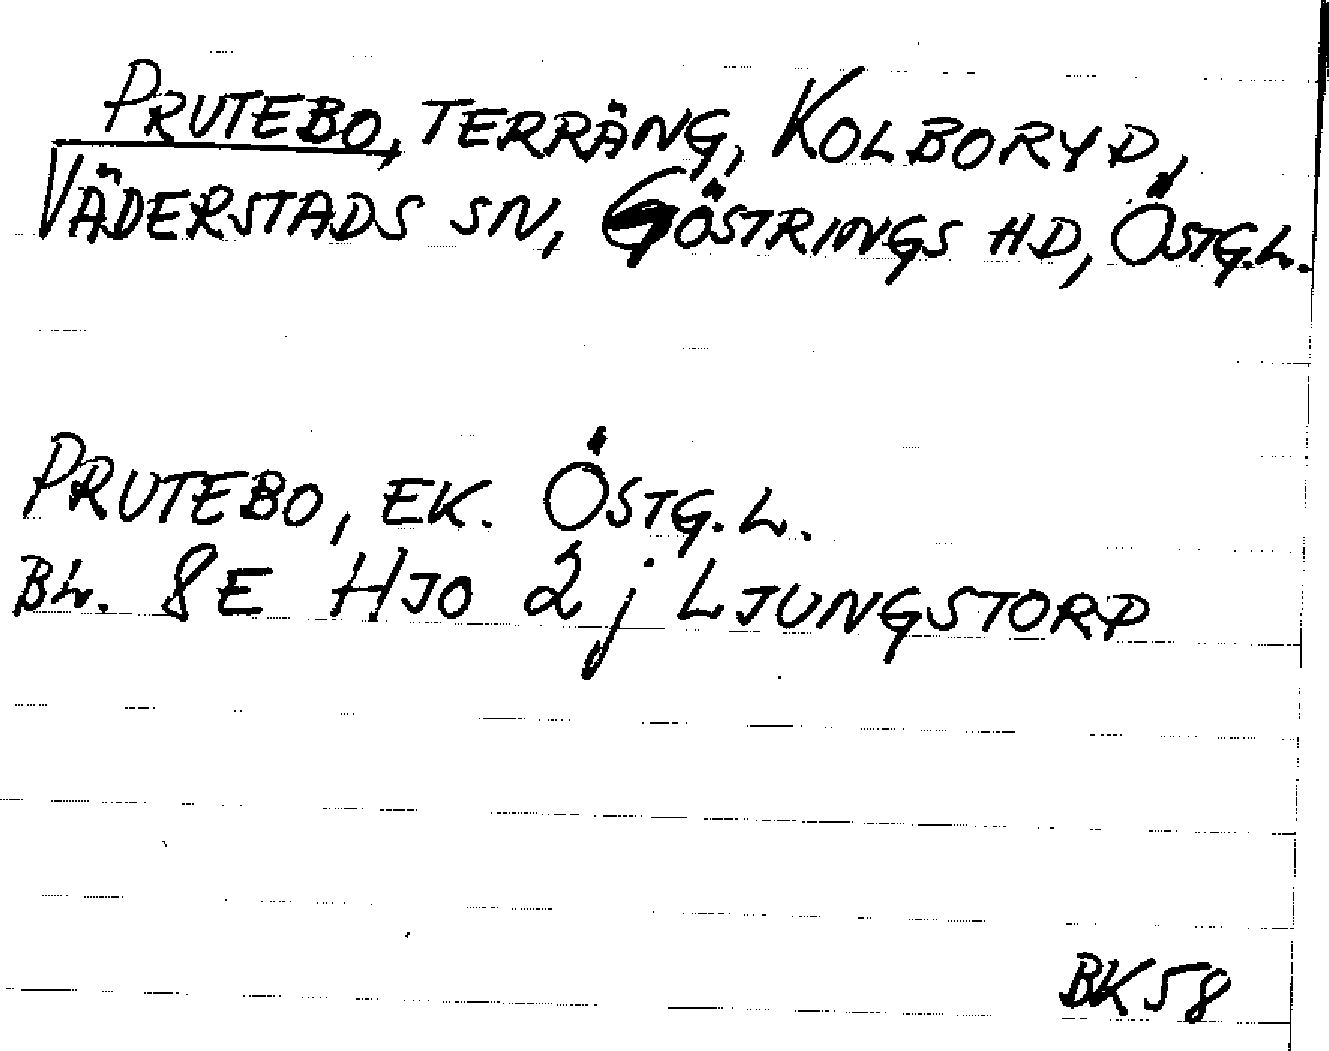 PRUTEBO, TERRÄNG, KOLBORYD,
VÄDERSTADS SN, GÖSTRINGS HD, ÖSTG.L.
PRUTEBO, EK. ÖSTG.L.
BL. 8E HJO 2j LJUNGSTORP
BK58